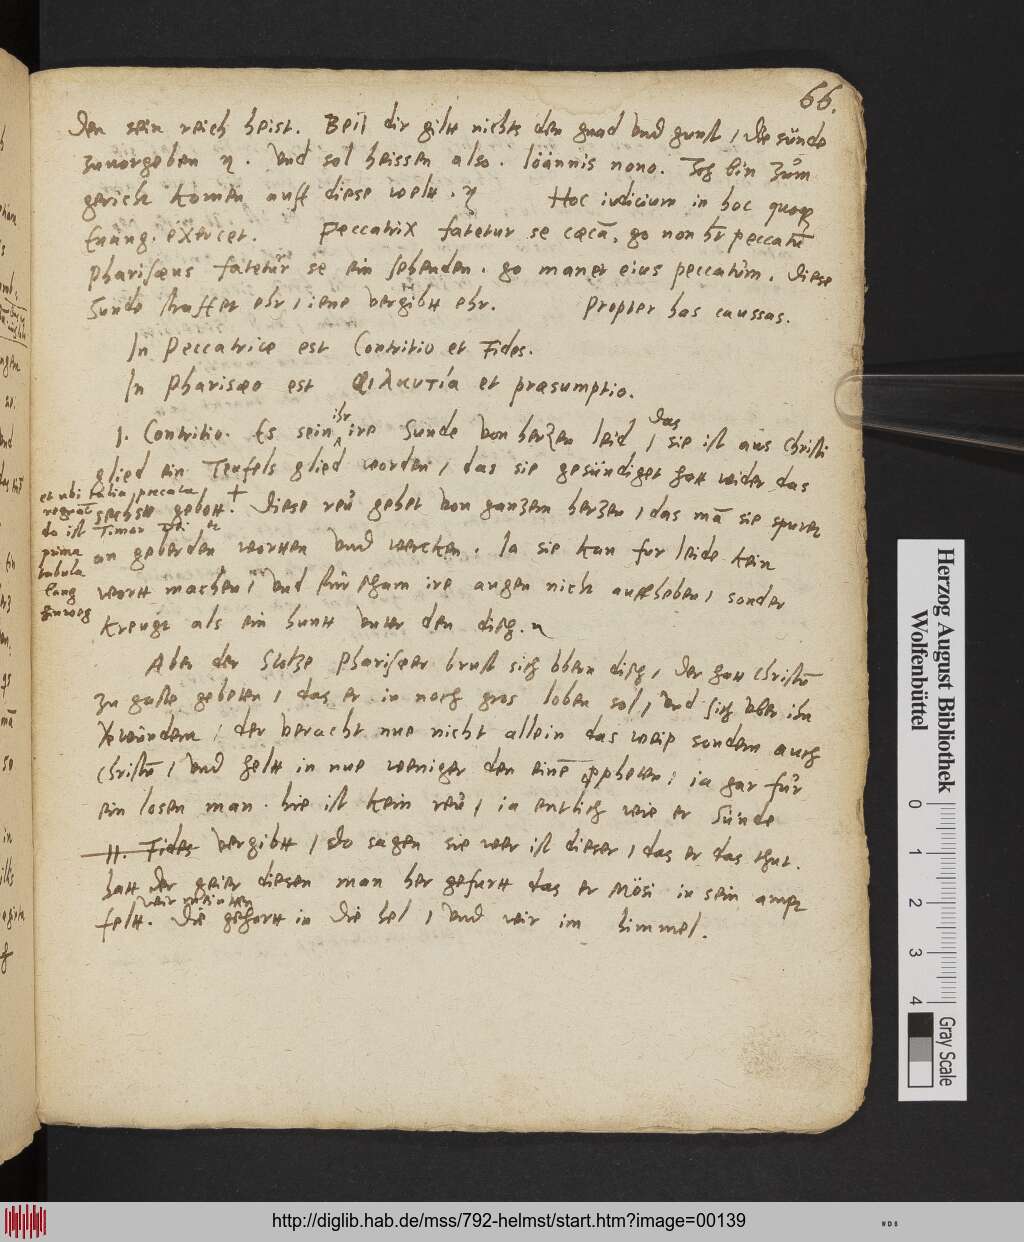 66.
den sein reich heist. Beÿ dir giltt nichts den gnad vnd gunst, die sünde
zuuorgeben ꝛc. vnd sol heissen also. Ioannis nono. Ich bin zům
gericht komen auff diese weltt. ꝛc Hoc iudicium in hoc quoqꝫ
Euang. exercet. Peccatrix fatetur se cæcā, go non ht peccatū
Pharisæus fatetur se ein sehenden. go manet eius peccatum. Diese
Sunde straffet ehr, iene vergibtt ehr. Propter has caussas.
In Peccatrice est Contritio et Fides.
In Pharisæo est Φιλαυτία et præsumptio.
I. Contritio. Es sein ihr ire Sunde von herzen leid, das sie ist aus Christi
glied ein Teufels glied worden, das sie gesündiget hatt wider das
sechste gebott. + Diese reů gehet von ganzem herzen, das mā sie spuret
an geberden wortten vnd wercken. Ia sie kan fur leide kein
wortt machen, vnd für scham ire augen nicht auffheben, sonder
kreugt als ein huntt vnter den disch. ꝛc
et ubi talia peccata
regnāt
do ist Timor Dei
prima
tabula
lang
hinweg
Aber der Stoltze Phariseer brust sich vbern disch, der hatt Christū
zu gaste gebeten, das er in noch gros loben sol, vnd sich vber ihn
verwundern, der veracht nue nicht allein das weip sondern auch
Christū, vnd heltt in nue weniger den einē ppheten, ia gar fůr
ein losen man. hie ist kein reů, ia entlich wie er Sünde
II. Fides vergibtt, sto sagen sie wer ist dieser, das er das thut.
hatt der geier diesen man her gefurtt das er Mosi in sein ampt
feltt. Die gehortt in die hel, vnd wir im himmel.
Herzog August Bibliothek
Wolfenbüttel
0 1 2 3 4
Gray Scale
http://diglib.hab.de/mss/792-helmst/start.htm?image=00139